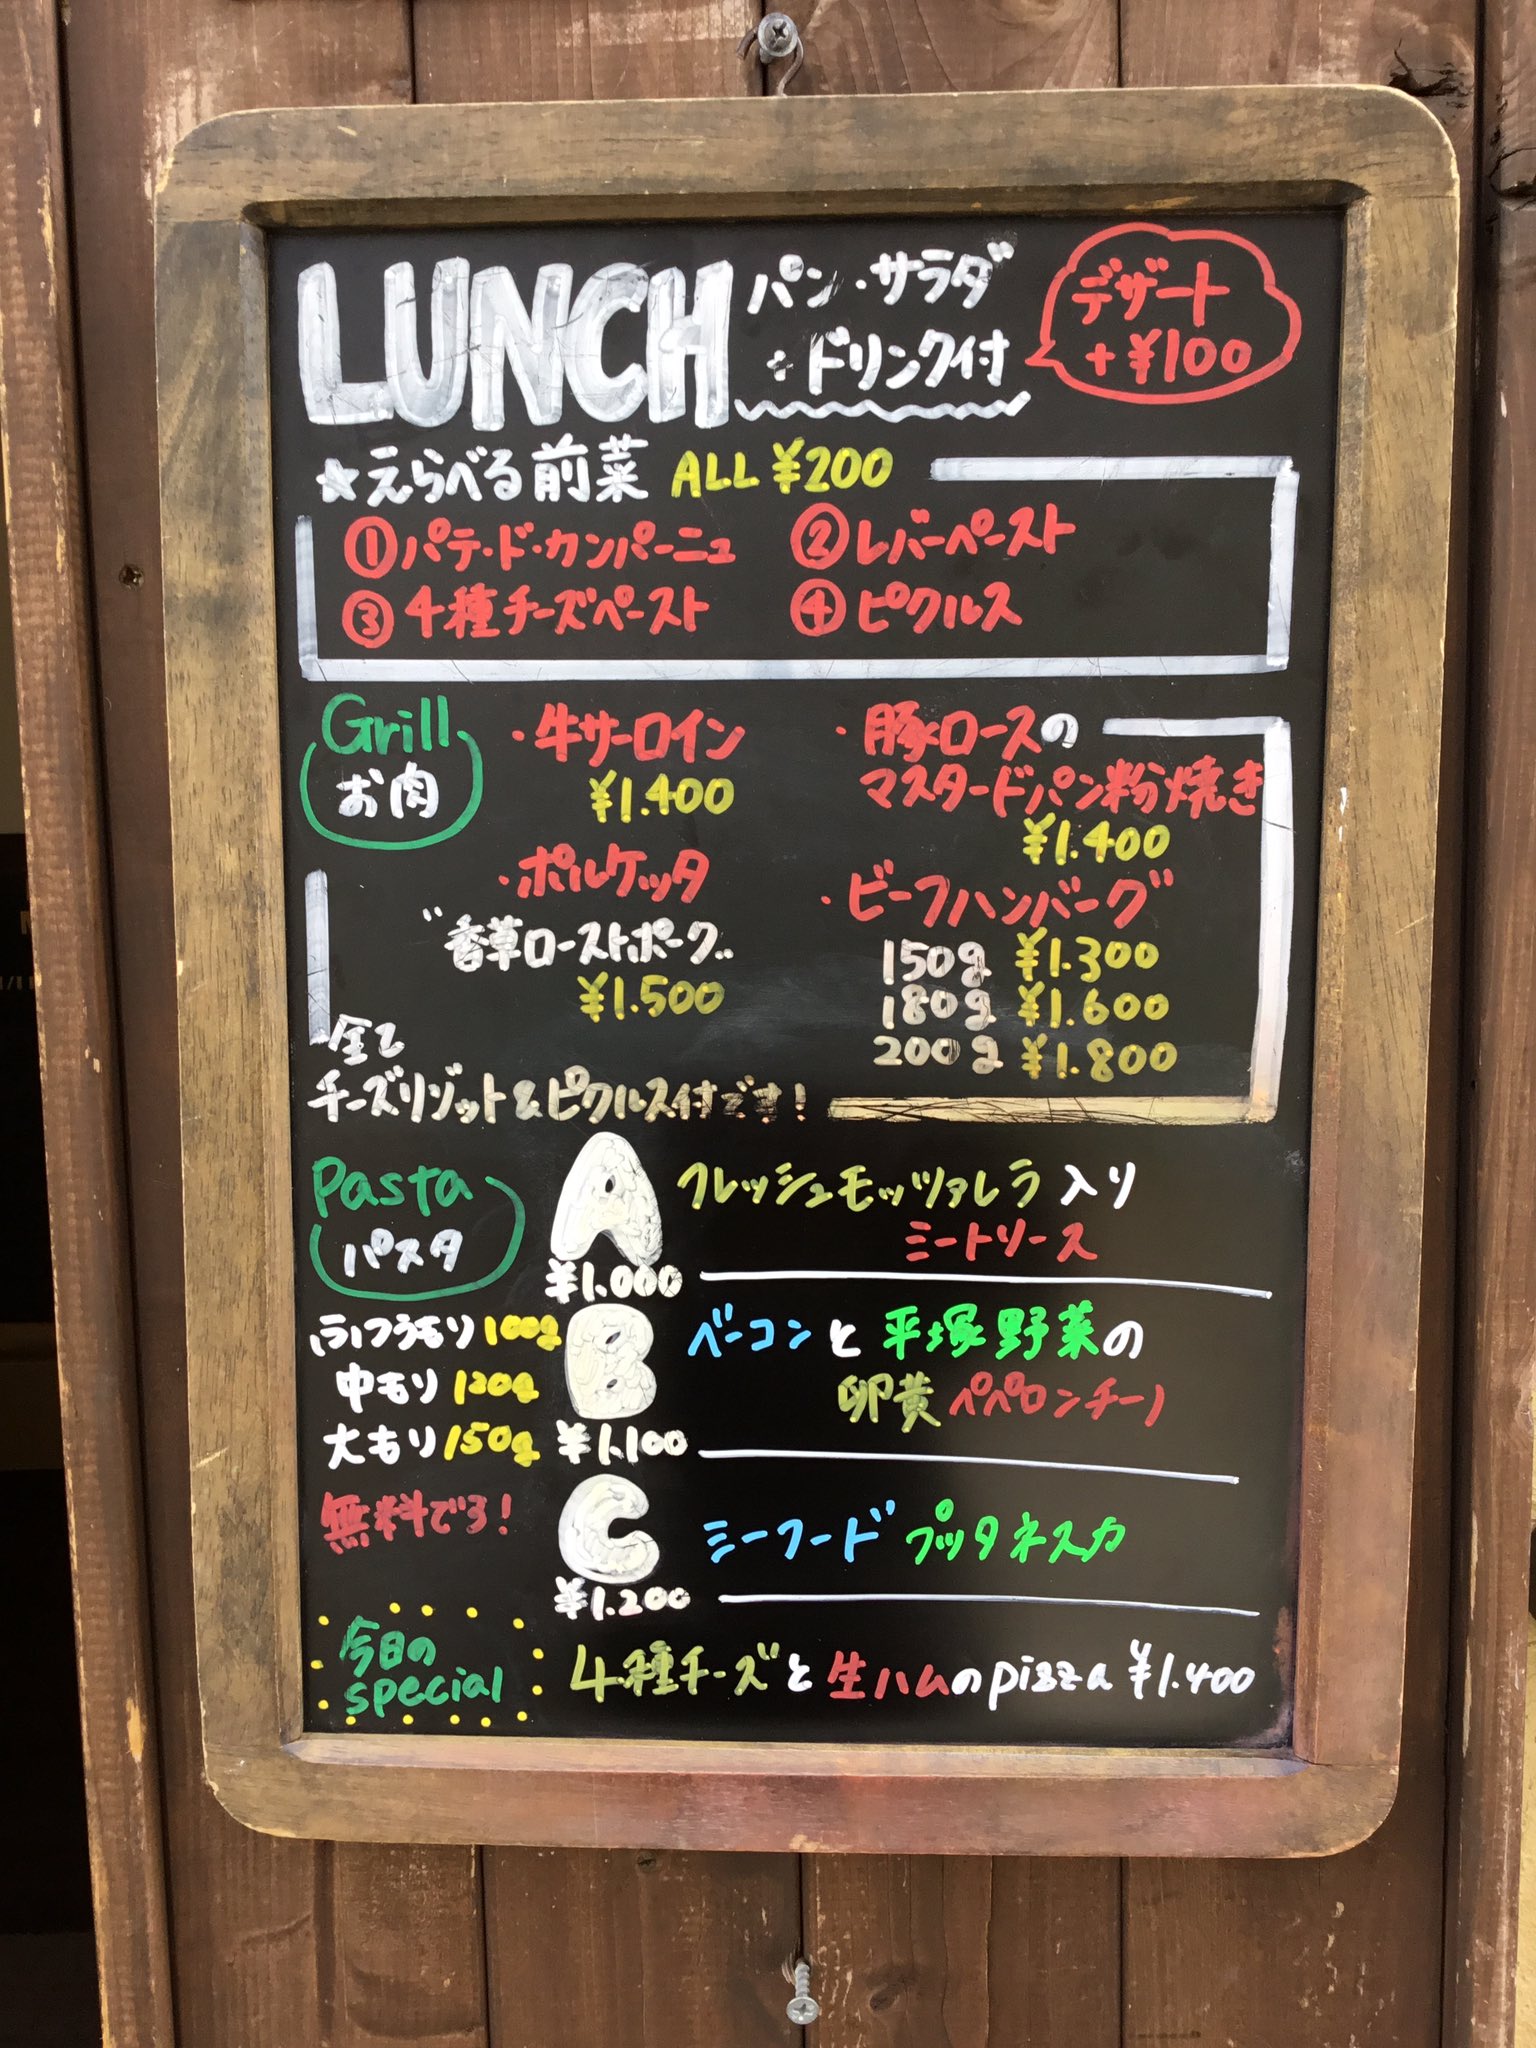 LUNCH パン・サラダ
+ドリンク付
デザート
+¥100
☆えらべる前菜 ALL ¥200
①パテ・ド・カンパーニュ ②レバーペースト
③4種チーズペースト ④ピクルス
Grill
お肉
・牛サーロイン
¥1.400
・豚ロースの
マスタードパン粉焼き
¥1.400
・ポルケッタ
"香草ローストポーク"
¥1.500
・ビーフハンバーグ
150g ¥1.300
180g ¥1.600
200g ¥1.800
全て
チーズリゾット&ピクルス付です!
Pasta
パスタ
ふつうもり 100g
中もり 120g
大もり 150g
無料です!
A フレッシュモッツァレラ入り
ミートソース
¥1.000
B ベーコンと平塚野菜の
卵黄ペペロンチーノ
¥1.100
C シーフードプッタネスカ
¥1.200
今日の
special
4種チーズと生ハムのpizza ¥1.400